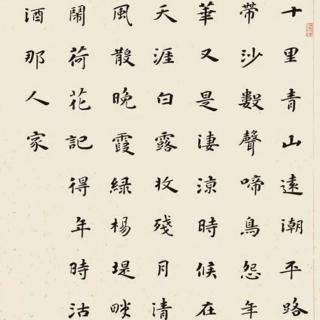 十里青山遠潮平路
帶沙數聲啼鳥怨年
華又是淒涼時候在
天涯白露收殘月清
風散曉霞綠楊堤畔
鬧荷花記得年時沽
酒那人家